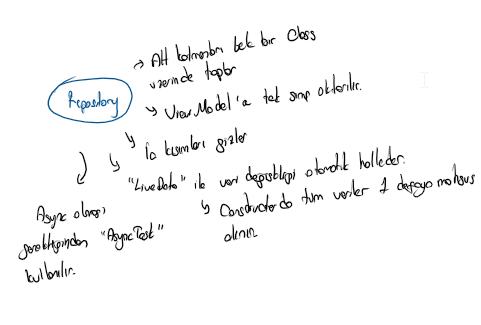 Repository
→ Alt katmanları tek bir Class
üzerinde toplar
↳ ViewModel'a tek sınıf aktarılır.
↳ İç kısımları gizler
↳ "LiveData" ile veri değişikliği otomatik halleder.
↳ Constructor da tüm veriler 1 defaya mahsus
alınır.
Async olması
gerektiğinden "AsyncTask"
kullanılır.